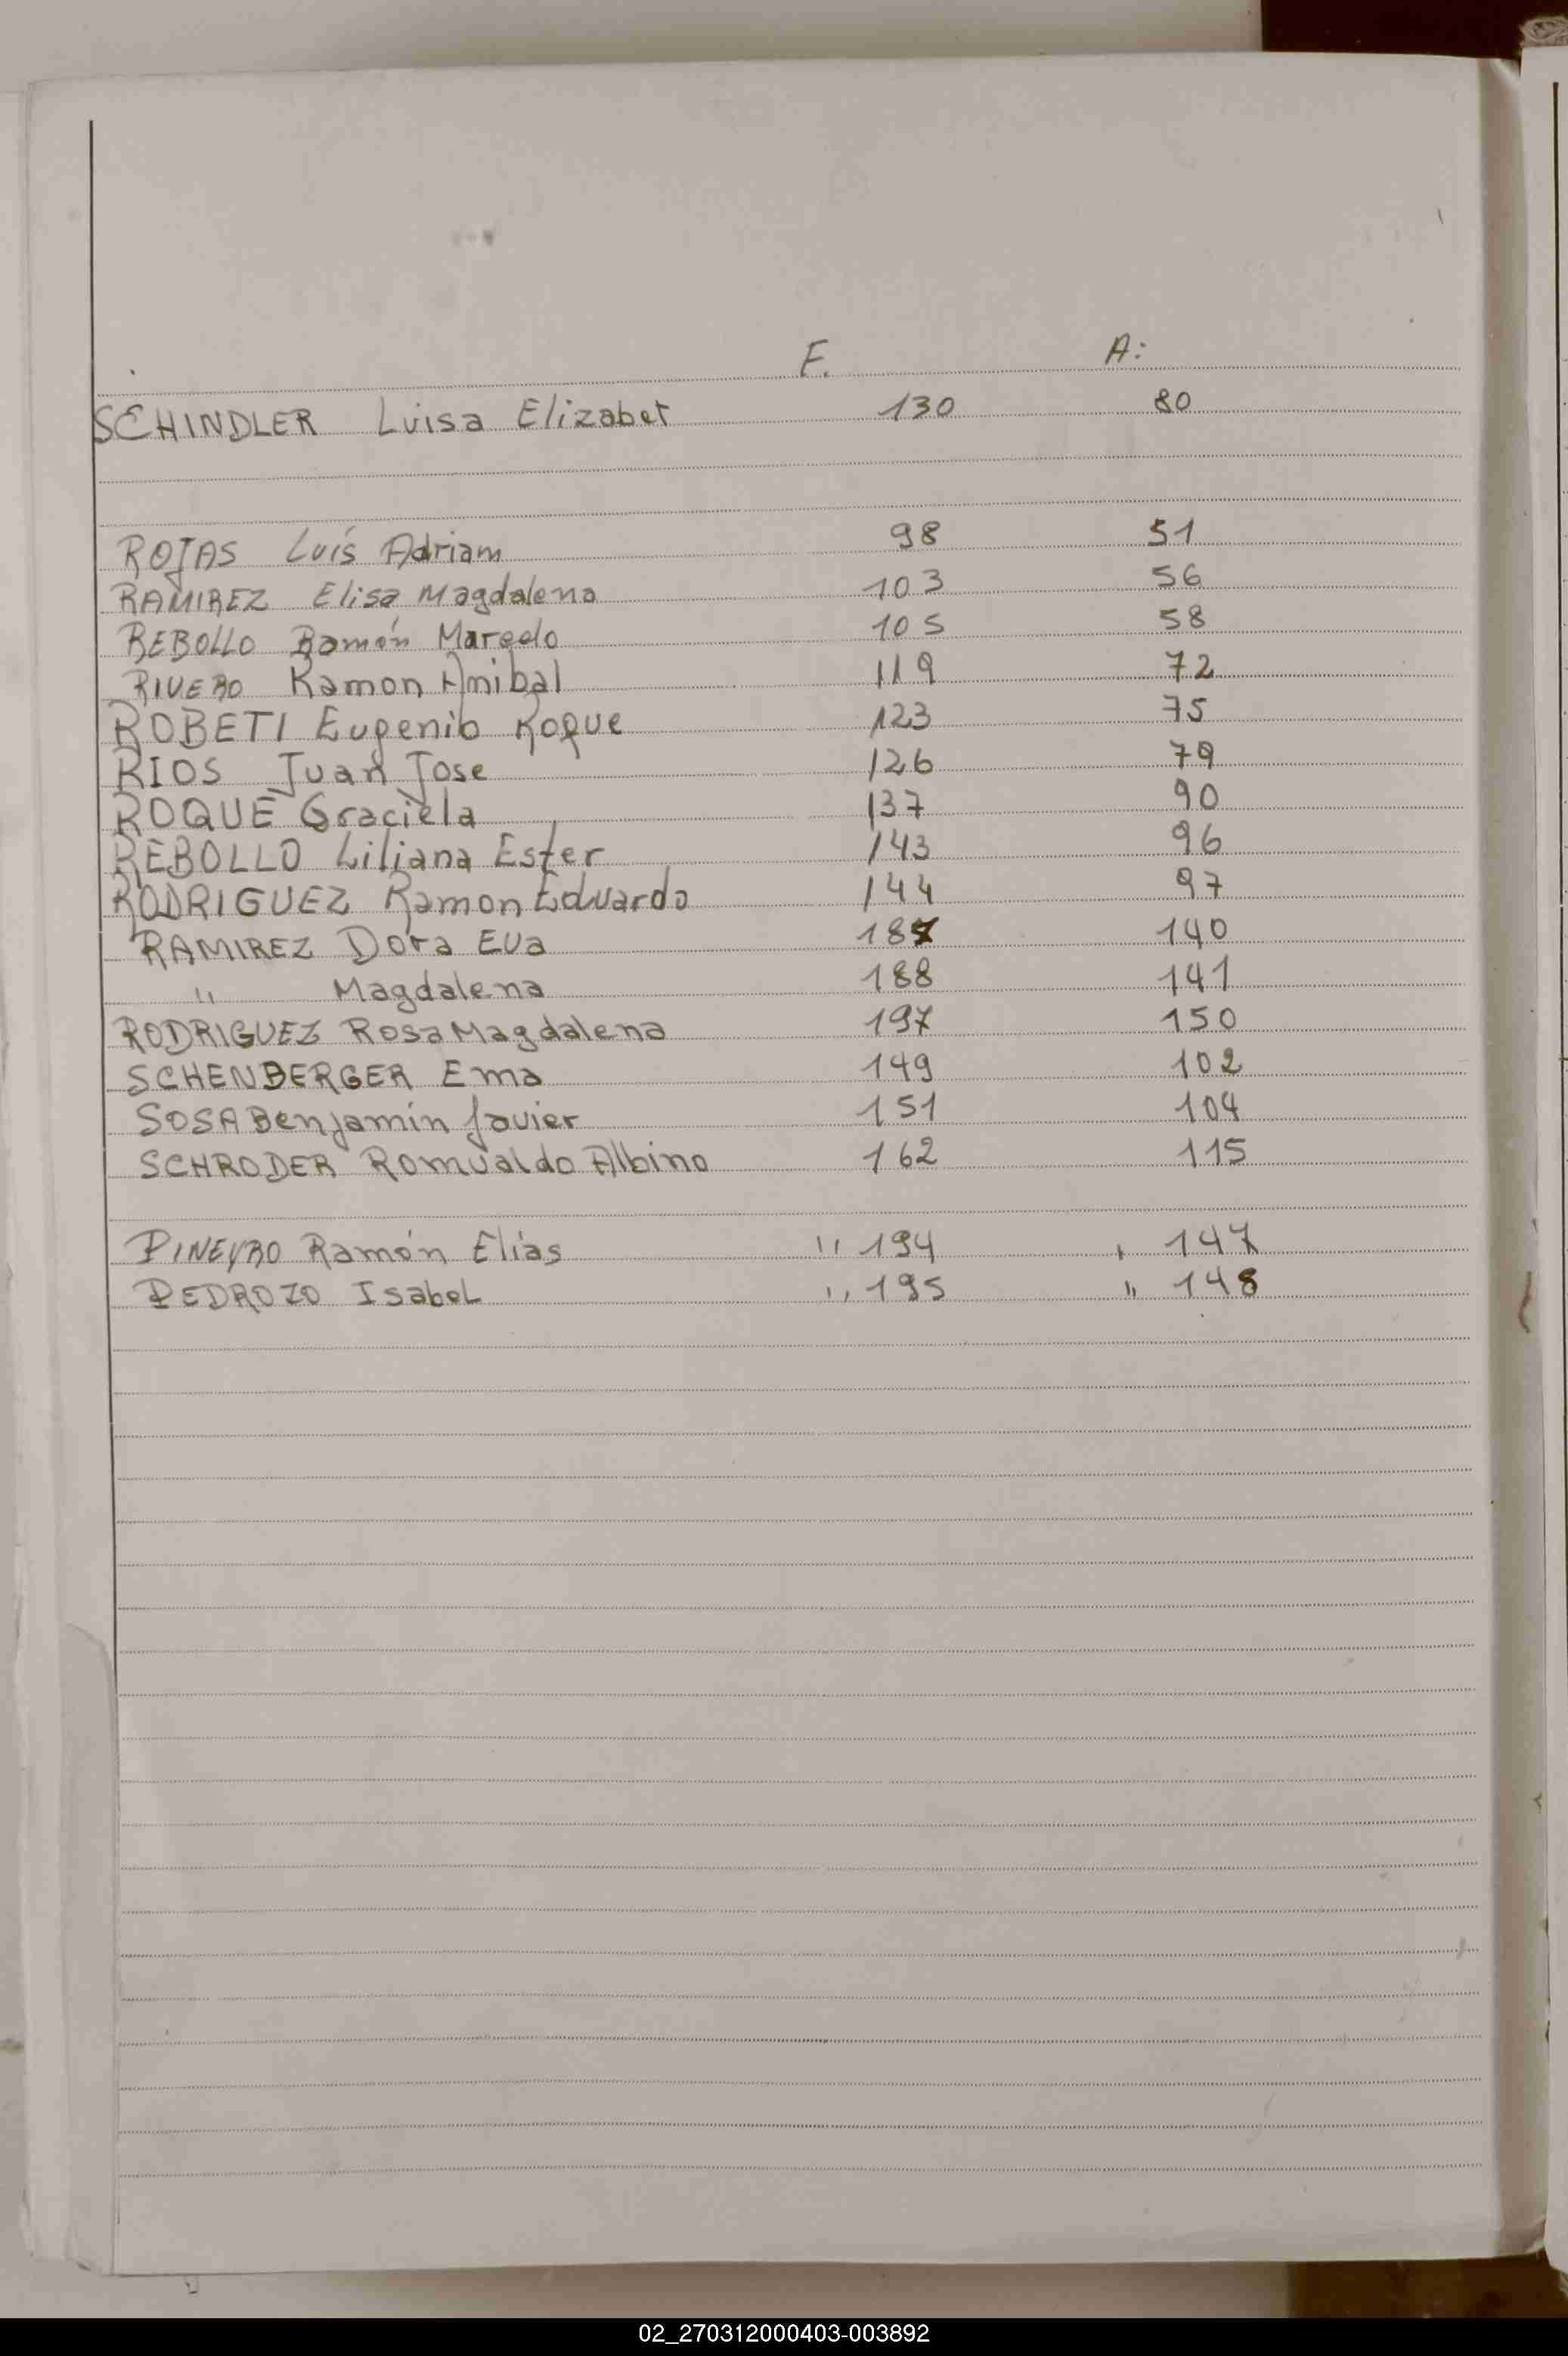 F. A:
SCHINDLER Luisa Elizabet 130 80
ROJAS Luís Adriam 98 51
RAMIREZ Elisa Magdalena 103 56
REBOLLO Ramón Marcelo 105 58
RIVERO Ramon Anibal 119 72
ROBETI Eugenio Roque 123 75
RIOS Juan Jose 126 79
ROQUE Graciela 137 90
REBOLLO Liliana Ester 143 96
RODRIGUEZ Ramon Eduardo 144 97
RAMIREZ Dora Eva 187 140
" Magdalena 188 141
RODRIGUEZ Rosa Magdalena 197 150
SCHENBERGER Ema 149 102
SOSA Benjamín Javier 151 104
SCHRODER Romualdo Albino 162 115
PINEYRO Ramón Elías " 194 " 147
PEDROZO Isabel " 195 " 148
02_270312000403-003892